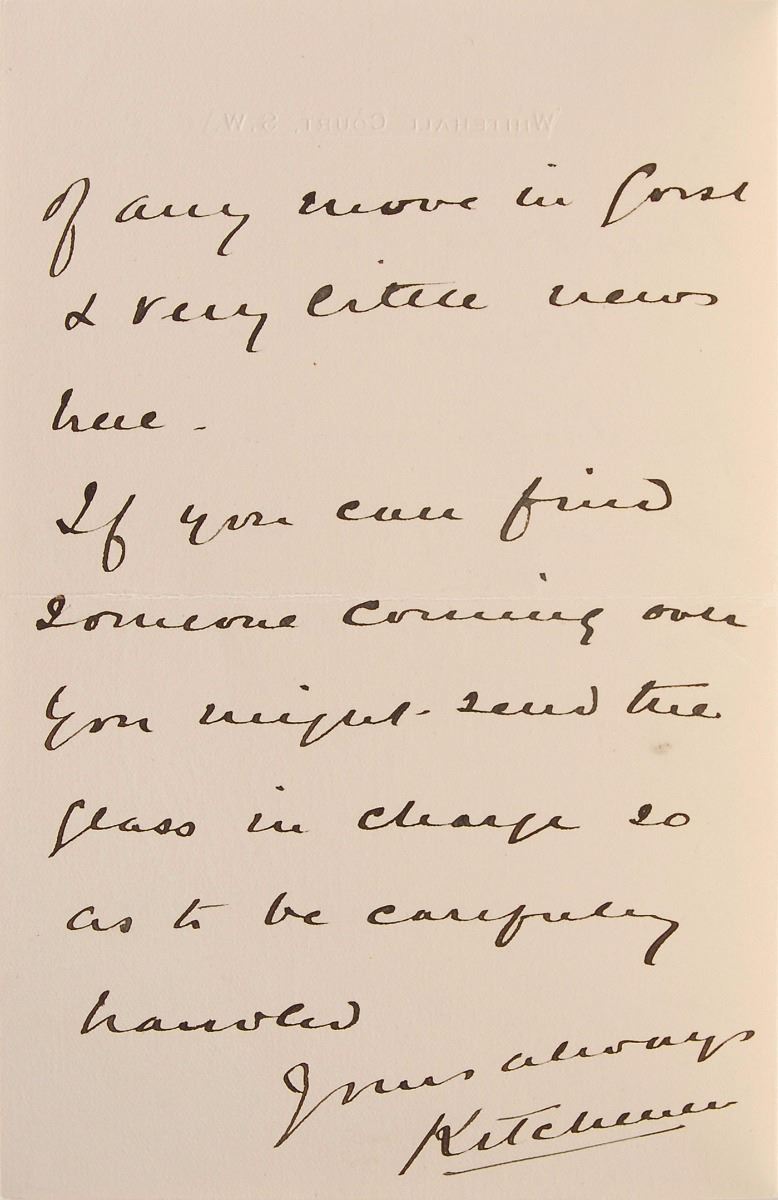 WHITEHALL COURT, S.W.
of any move in Gorst
& very little news
here -
If you can find
someone coming over
you might send the
glass in charge so
as to be carefully
handled
Yours always
Kitchener